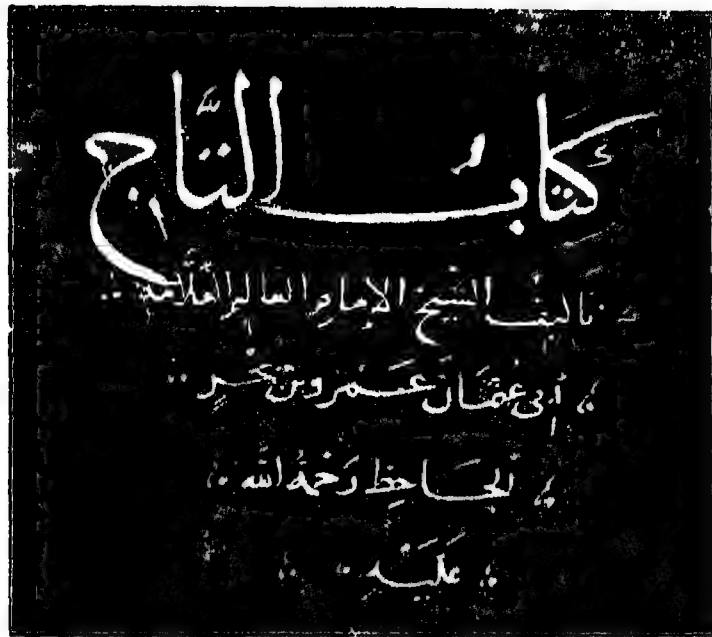 كتاب التاج
تاليف الشيخ الامام العالم العلامة
أبي عثمان عمرو بن بحر
الجاحظ رحمة الله
عليه